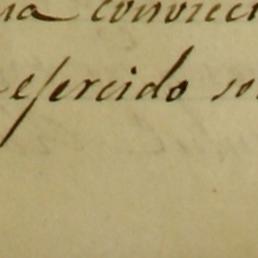 na convicci
ejercido so